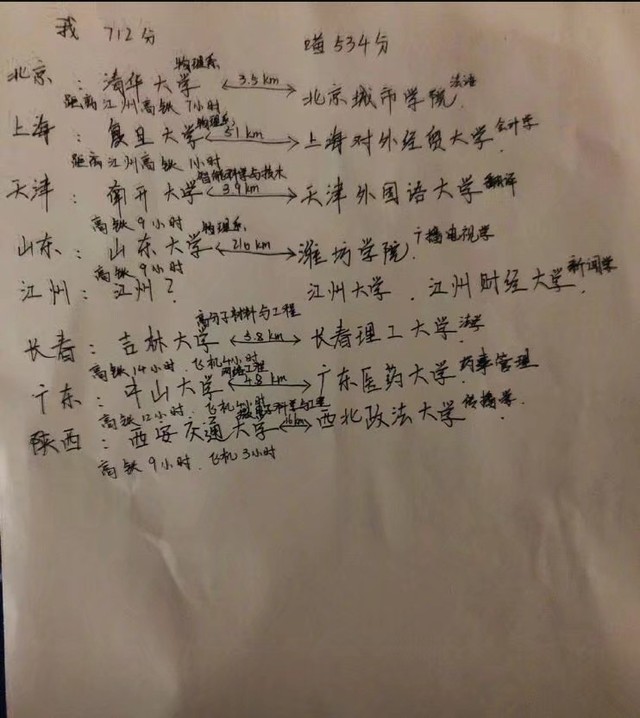 我 712分 喵534分
北京：清华大学 物理系 3.5km 北京城市学院 法语
距离江州高铁7小时
上海：复旦大学 物理系 5.1km 上海对外经贸大学 会计学
距离江州高铁1小时
天津：南开大学 智能科学与技术 3.9km 天津外国语大学 翻译
高铁9小时
山东：山东大学 物理系 216km 潍坊学院 广播电视学
高铁9小时
江州：江州？ 江州大学、江州财经大学 新闻学
长春：吉林大学 高分子材料与工程 5.8km 长春理工大学 法学
高铁14小时、飞机4小时
广东：中山大学 网络工程 48km 广东医药大学 药事管理
高铁12小时、飞机4小时
陕西：西安交通大学 科学与工程 16km 西北政法大学 传播学
高铁9小时、飞机3小时